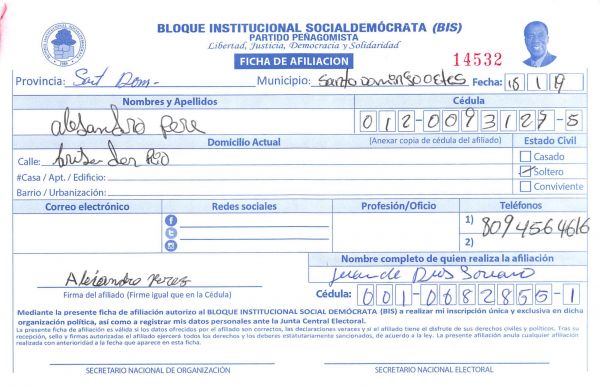 BLOQUE INSTITUCIONAL SOCIALDEMÓCRATA (BIS)
PARTIDO PEÑAGOMISTA
Libertad, Justicia, Democracia y Solidaridad
FICHA DE AFILIACION
14532
Provincia: Sant Dom- Municipio: Santo Domingo Oeste Fecha: 18 1 19
Nombres y Apellidos Cédula
alejandro Pere 012-0093129-5
Domicilio Actual (Anexar copia de cédula del afiliado) Estado Civil
Calle: Casado
#Casa / Apt. / Edificio: Soltero
Barrio / Urbanización: Conviviente
Correo electrónico Redes sociales Profesión/Oficio Teléfonos
1) 8094564616
2)
Nombre completo de quien realiza la afiliación
Alejandro Perez Juan de Dios Soriano
Firma del afiliado (Firme igual que en la Cédula) Cédula: 001-0682855-1
Mediante la presente ficha de afiliación autorizo al BLOQUE INSTITUCIONAL SOCIAL DEMÓCRATA (BIS) a realizar mi inscripción única y exclusiva en dicha
organización política, así como a registrar mis datos personales ante la Junta Central Electoral.
La presente ficha de afiliación es válida si los datos ofrecidos por el afiliado son correctos, las declaraciones veraces y si el afiliado tiene el disfrute de sus derechos civiles y políticos. Tras su
recepción, sello y firmas autorizadas el afiliado ejercerá todos los derechos y los deberes estatutariamente sancionados, de acuerdo a la ley. La presente afiliación anula cualquier afiliación
realizada con anterioridad a la fecha que aparece en esta ficha.
SECRETARIO NACIONAL DE ORGANIZACIÓN SECRETARIO NACIONAL ELECTORAL